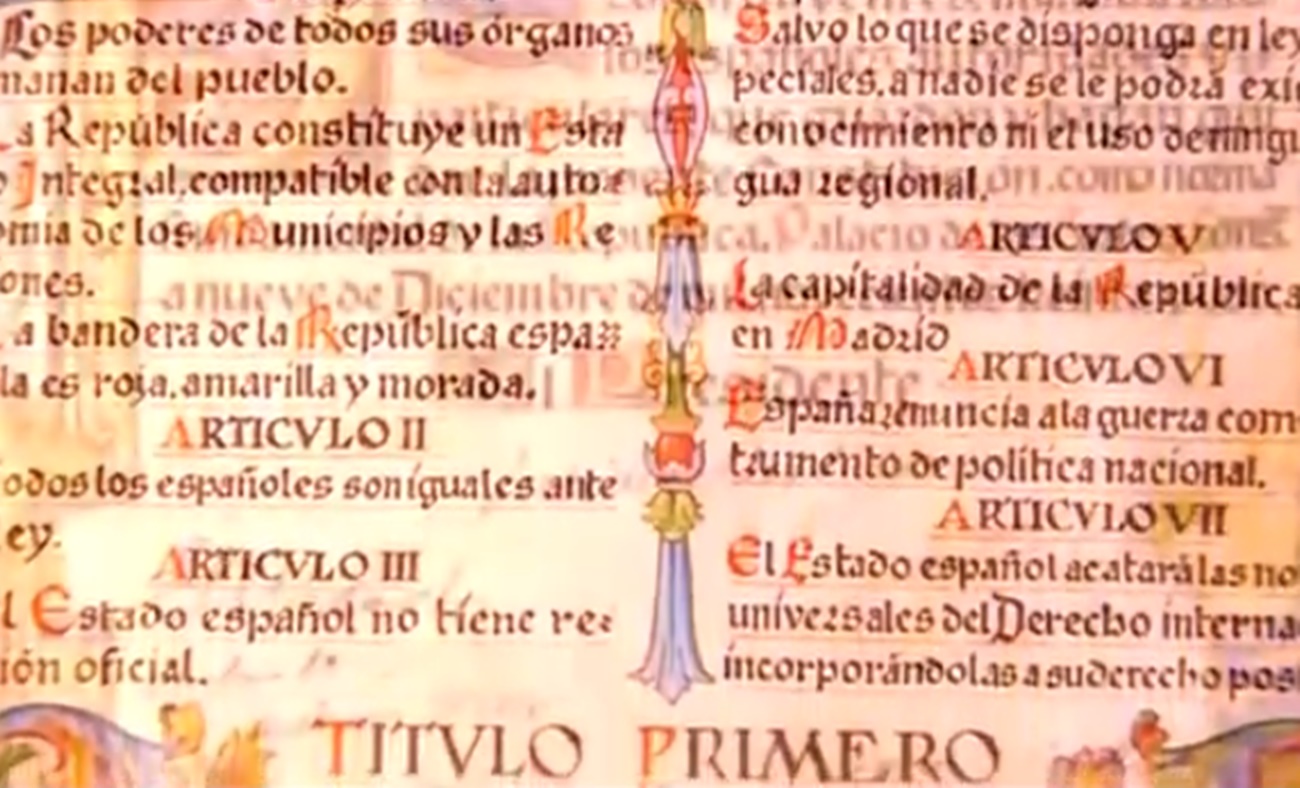 Los poderes de todos sus órganos
manan del pueblo.
La República constituye un Esta
o Integral, compatible con la auto=
omia de los Municipios y las Re
ones.
a bandera de la República espa=
la es roja, amarilla y morada.
ARTICVLO II
odos los españoles son iguales ante
ey.
ARTICVLO III
l Estado español no tiene re=
ión oficial.
Salvo lo que se disponga en ley
peciales, a nadie se le podrá exi
conocimiento ni el uso de ningu
gua regional.
ARTICVLO V
La capitalidad de la República
en Madrid
ARTICVLO VI
España renuncia a la guerra com
trumento de política nacional.
ARTICVLO VII
El Estado español acatará las no
universales del Derecho interna
incorporándolas a su derecho posi
TITVLO PRIMERO
a nueve de Diciembre de
Palacio
Presidente